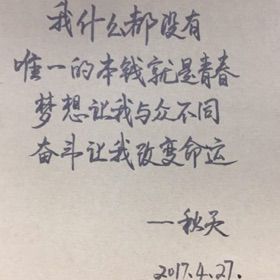 我什么都没有
唯一的本钱就是青春
梦想让我与众不同
奋斗让我改变命运
一秋天
2017.4.27.